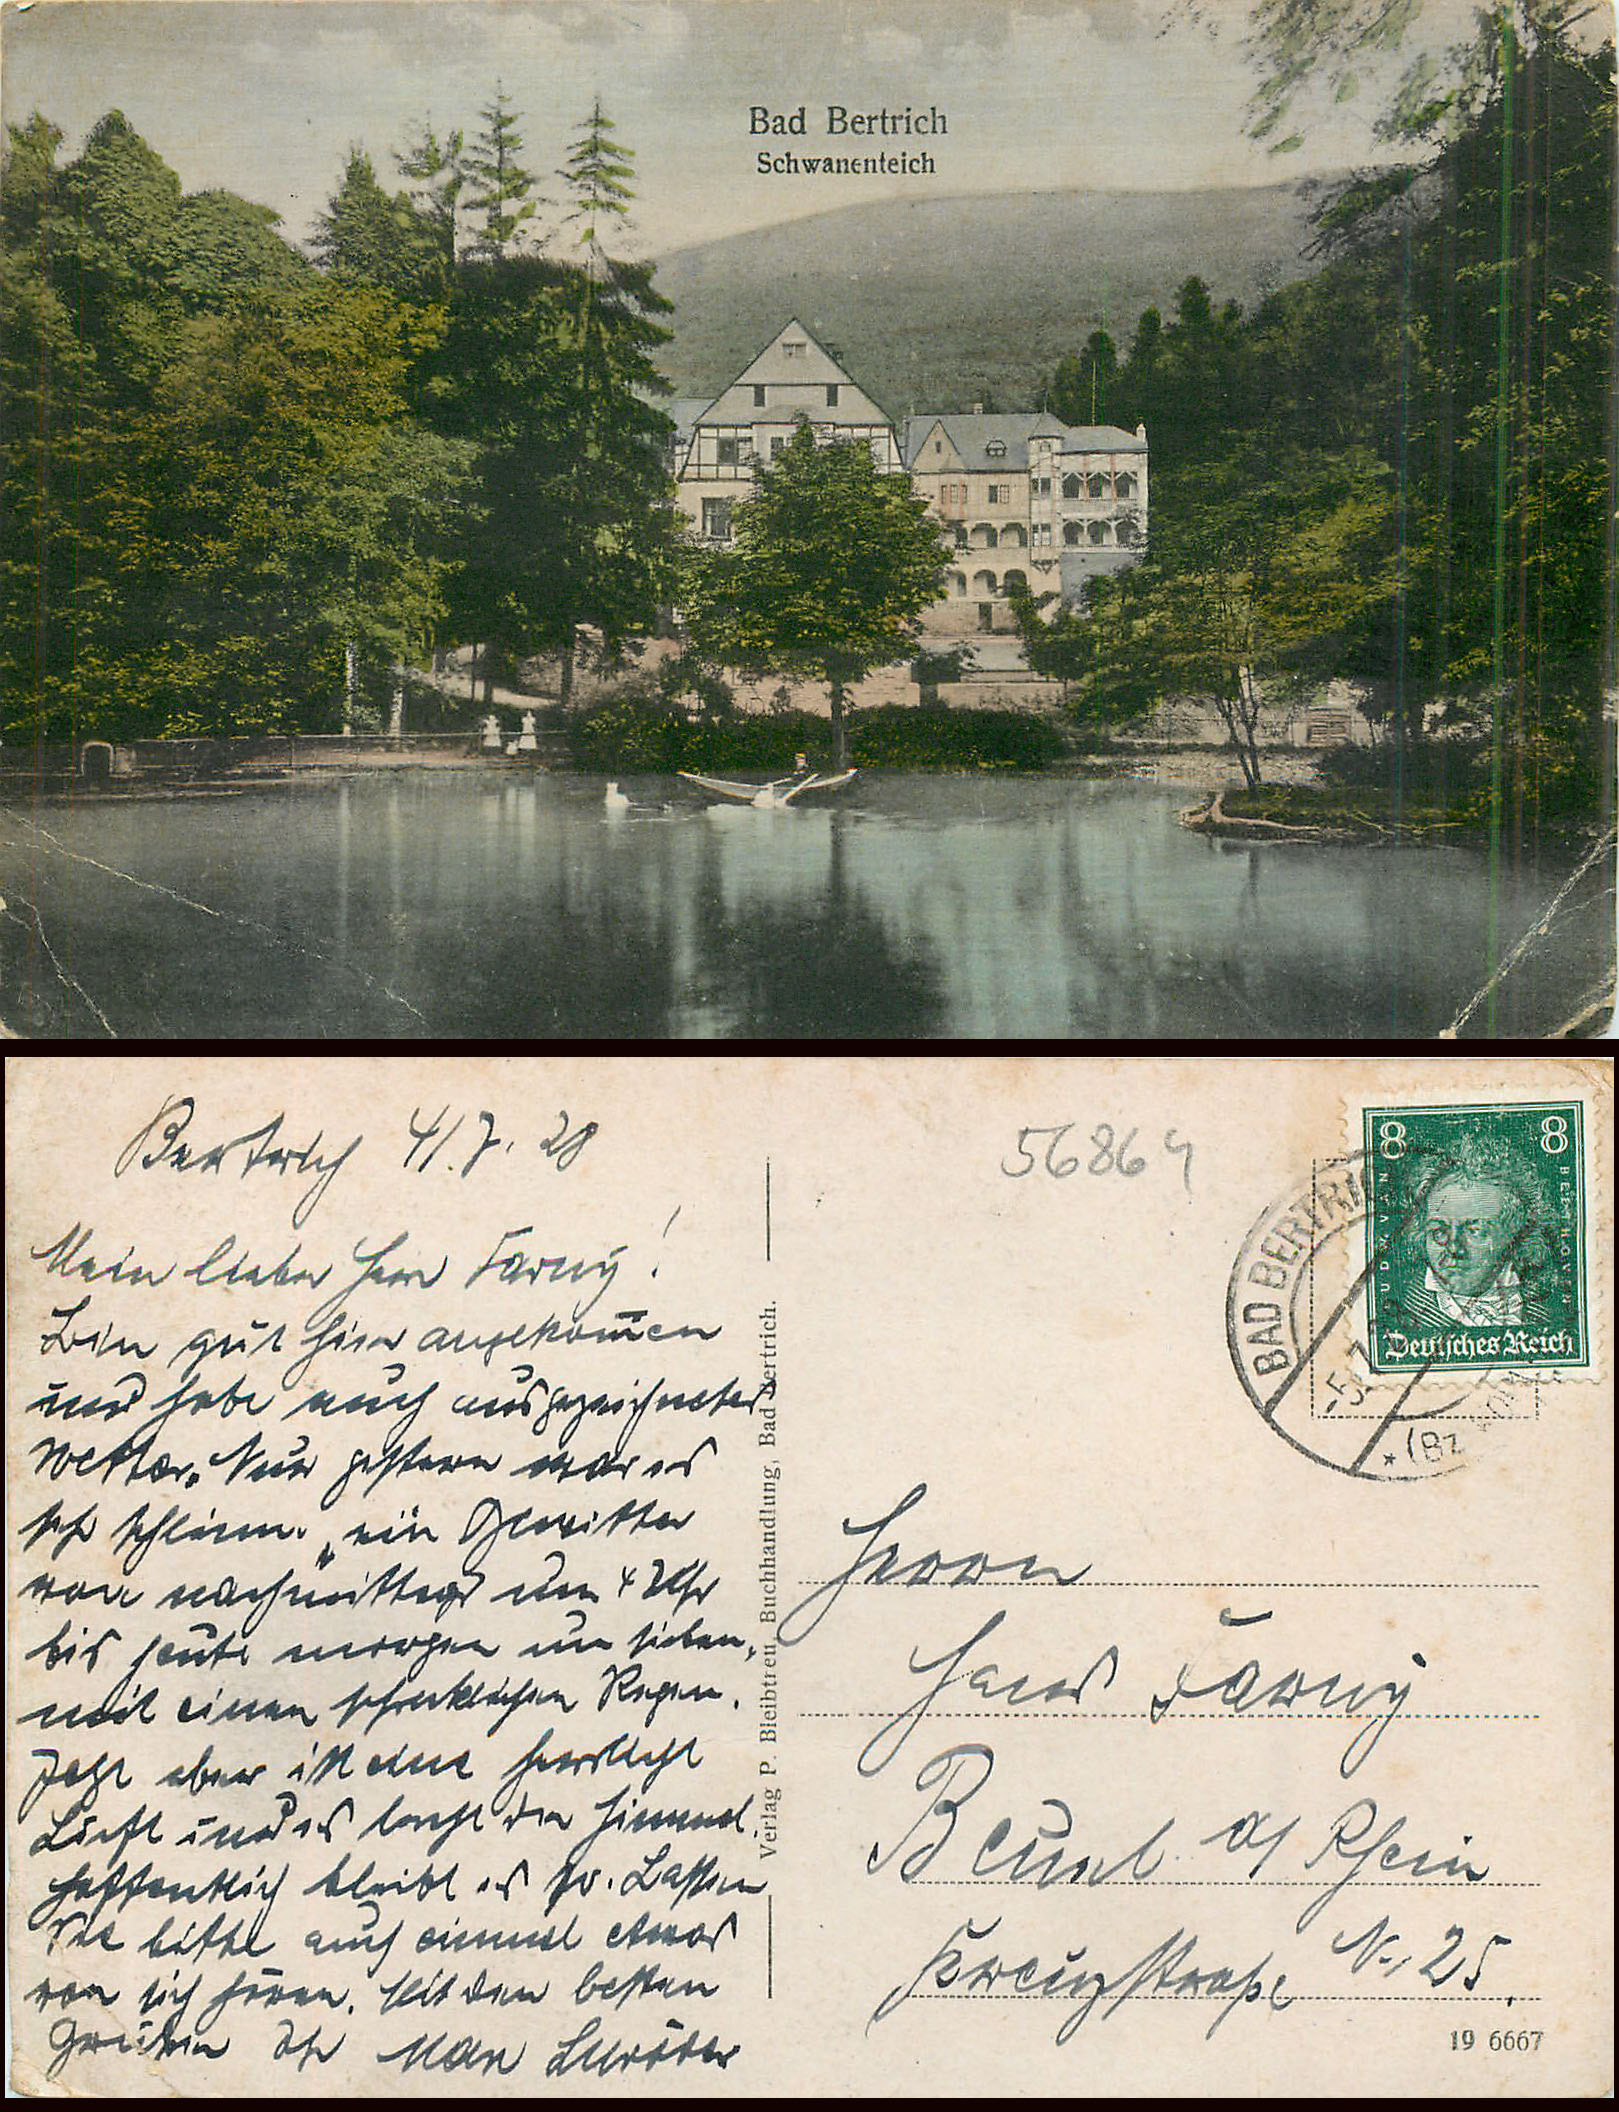 Bad Bertrich
Schwanenteich
Bertrich 4/.7. 28
Mein lieber Herr Tarny!
Bin gut hier angekom̅en
und habe auch ausgezeichnetes
Wetter. Nur gestern war es
sehr schlimm. ein Gewitter
von nachmittags um 4 Uhr
bis heute morgen um sieben,
mit einen schrecklichen Regen.
Jetzt aber ist eine herrliche
Luft und es lacht der Himmel.
Hoffentlich bleibt es so. Lassen
Sie bitte auch einmal etwas
von sich hören. Mit den besten
Grüßen Ihr Max Schröder
Verlag P. Bleibtreu, Buchhandlung, Bad Bertrich.
56864
8 8
LUDW. VAN BEETHOVEN
Deutsches Reich
BAD BERTRICH
-5.7.28
* (Bz
Herrn
Hans Tarny
Beuel a/ Rhein
Kreuzstraße No. 25.
19 6667